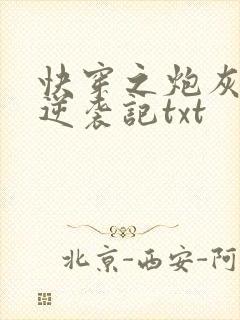 快穿之炮灰
逆袭記txt
北京-西安-阿